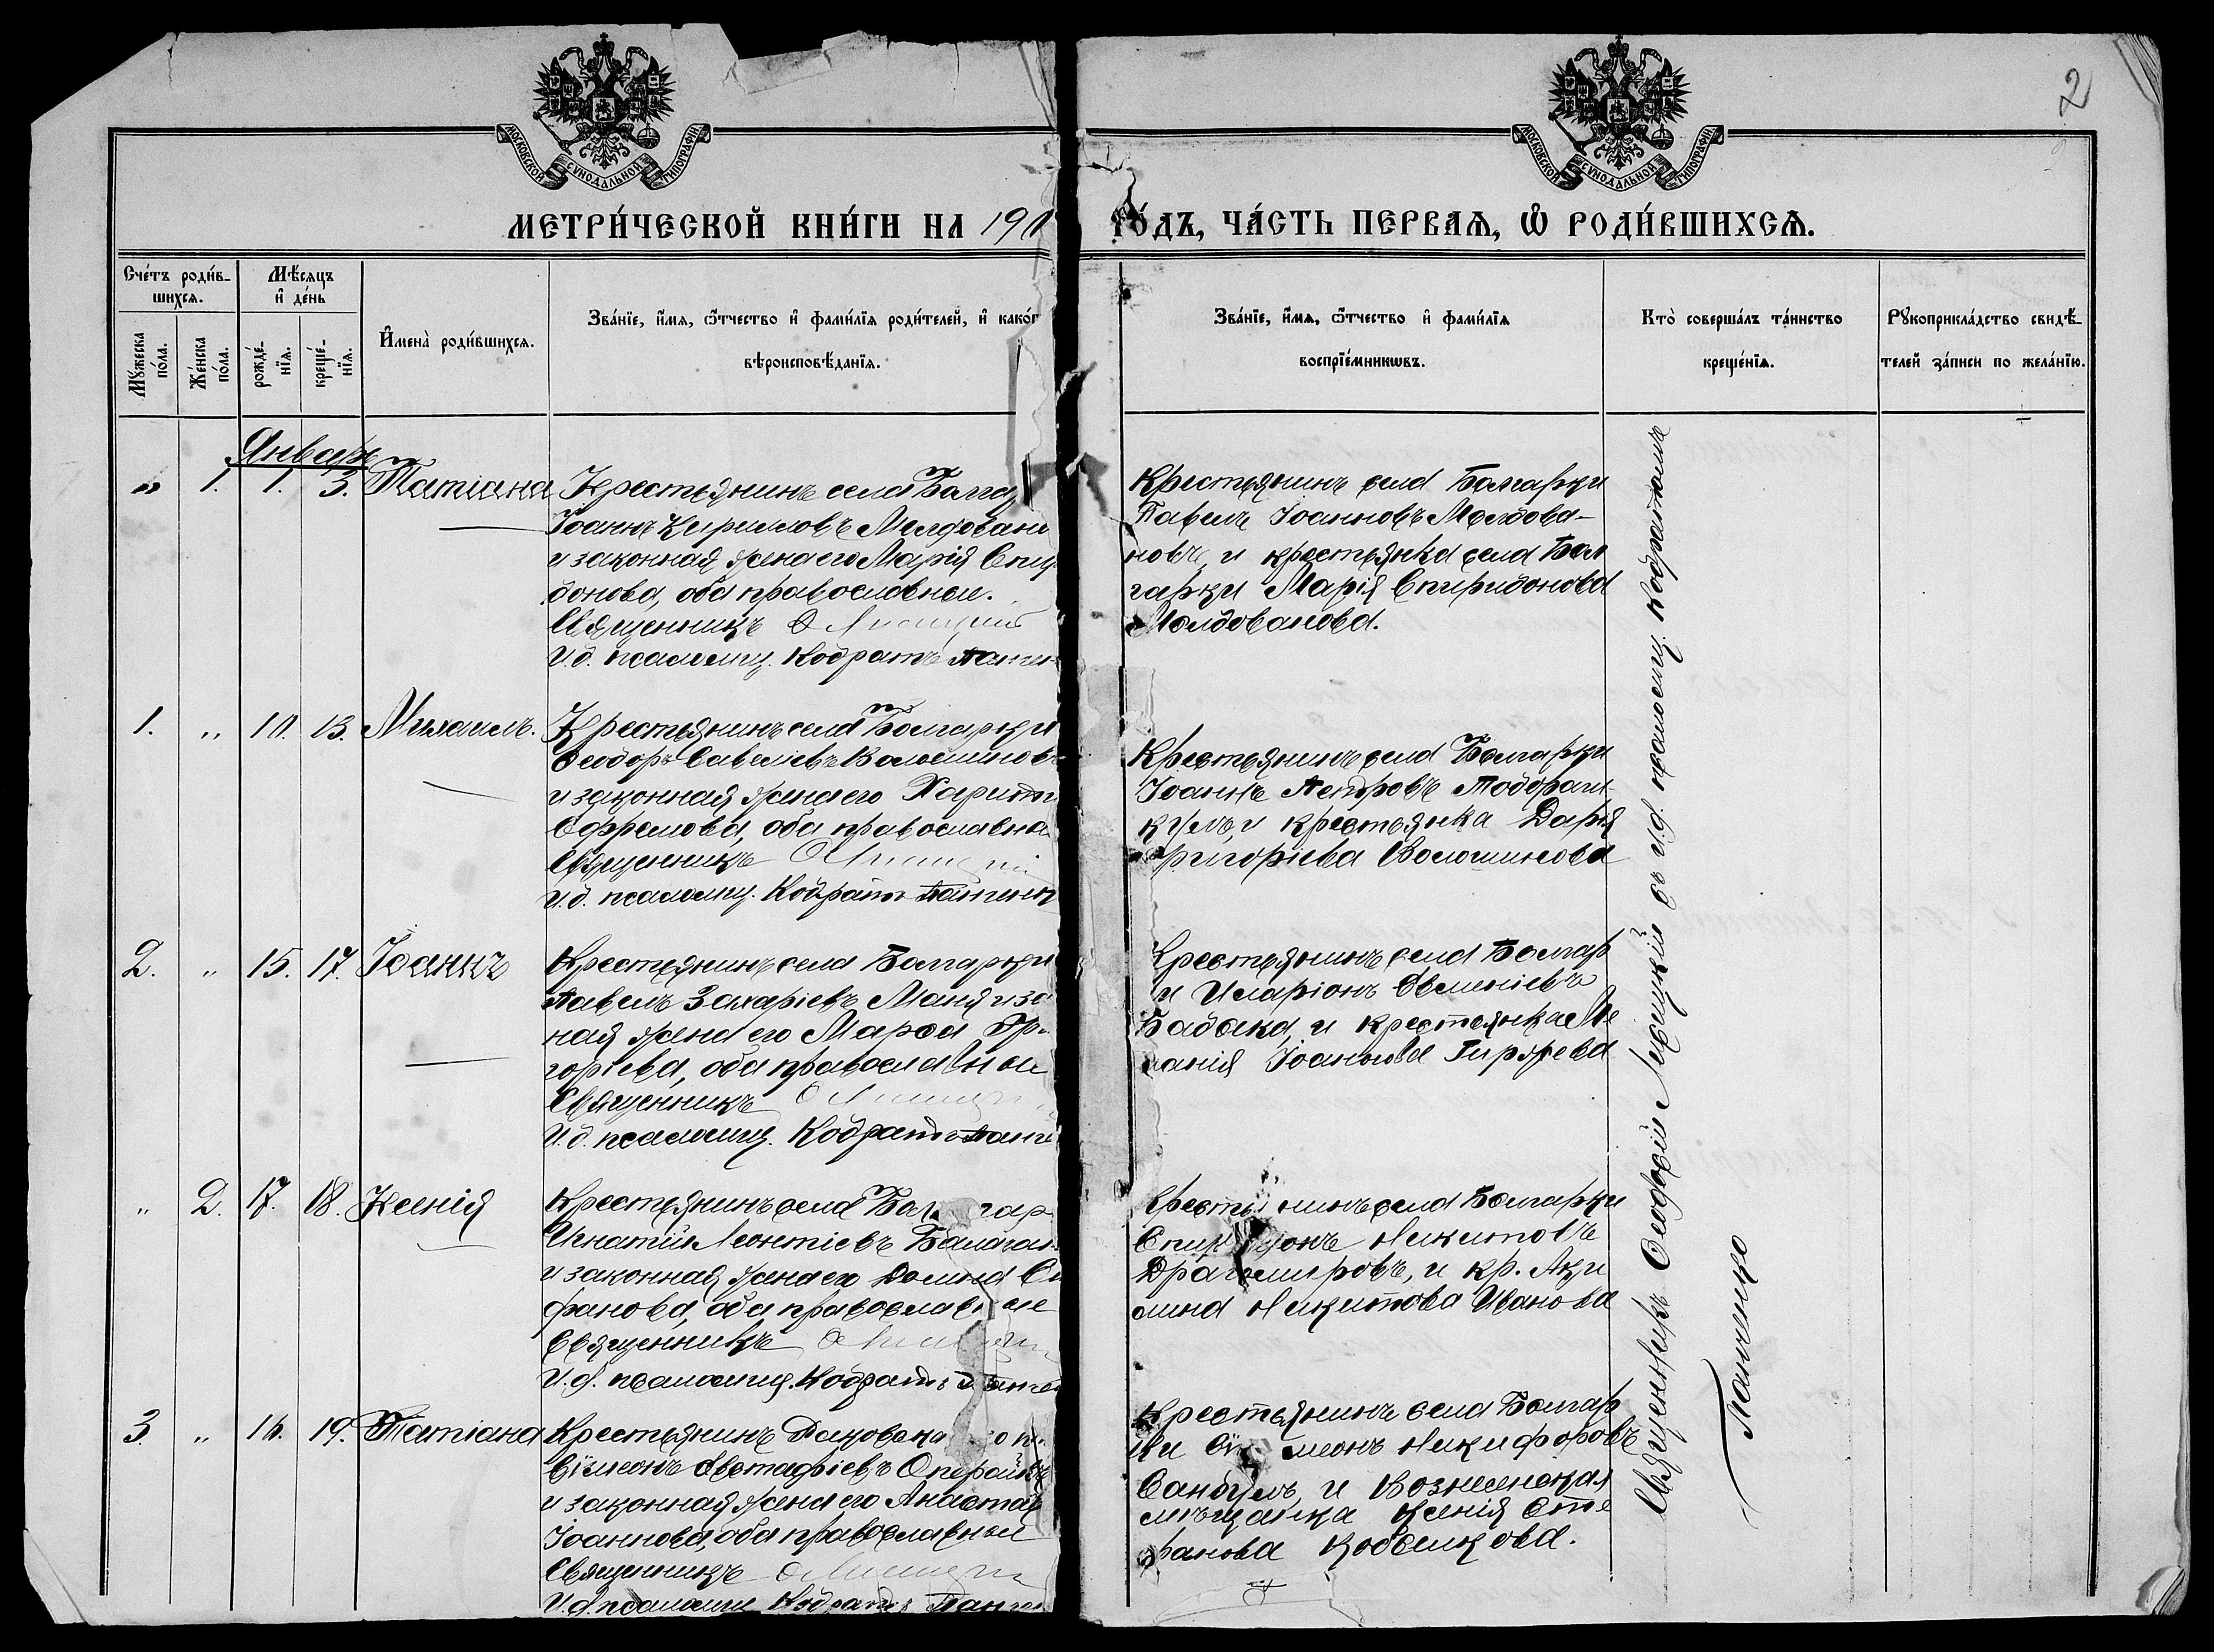 2
МОСКОВСКОЙ СѴНОДАЛЬНОЙ ТИПОГРАФІИ
МОСКОВСКОЙ СѴНОДАЛЬНОЙ ТИПОГРАФІИ
МЕТРИ́ЧЕСКОЙ КНИ́ГИ НА 191
ГО́ДЪ, ЧА́СТЬ ПЕРВАѦ, Ѡ҆ РОДИ́ВШИХСѦ.
Сче́тъ роди́в-
шихсѧ.
Мѣ́сѧцъ
и҆ де́нь
Мꙋжеска
по́ла.
Же́нска
по́ла.
рожде́-
нїѧ.
креще́-
нїѧ.
И҆мена̀ роди́вшихсѧ.
Зва́нїе, и҆́мѧ, ѻ҆́тчество и҆ фами́лїѧ роди́телей, и҆ како́г
вѣроисповѣ́данїѧ.
Зва́нїе, и҆́мѧ, ѻ҆́тчество и҆ фами́лїѧ
воспрїе́мникѡвъ.
Кто̀ соверша́лъ та́инство
креще́нїѧ.
Рꙋкоприкла́дство свидѣ́-
телей за́писи по жела́нїю.
Январь
" 1. 1. 3. Татіана
Крестьянинъ села Болга
Іоаннъ Кириловъ Молдовано
и законная жена его Марія Спи
донова, оба православные.
Священникъ Ѳ Лисицкій
И. д. псаломщ. Кодратъ Панчен
Крестьянинъ села Болгарки
Павелъ Іоанновъ Молдова-
новъ, и крестьянка села Бол
гарки Марія Спиридонова
Молдованова.
1. " 10. 13. Михаилъ.
Крестьянинъ села Болгарки
Ѳеодоръ Савеліевъ Волошиновъ
и законная жена его Харит
Ефремова, оба православны
Священникъ Ѳ Лисицкій
И. д. псаломщ. Кодратъ Панченк
Крестьянинъ села Болгарки
Іоаннъ Петровъ Тодораш-
кулъ, и крестьянка Дарія
Григоріева Волошинова
2. " 15. 17. Іоаннъ
Крестьянинъ села Болгарки
Павелъ Захаріевъ Маня и за
ная жена его Марѳа Гри
горіева, оба православные
Священникъ Ѳ Лисицк
И. д. псаломщ. Кодратъ Панче
Крестьянинъ села Болгар
и Иларіонъ Евменіевъ
Бабока, и крестьянка Ме
ланія Іоаннова Гиржева
" 2. 17. 18. Ксенія
Крестьянинъ села Бо гар
Игнатій Леонтіевъ Балаган
и законная жена его Домна Ст
фанова, оба православные
Священникъ Ѳ Лисицк
И. д. псаломщ. Кодратъ Панчен
Крестьянинъ села Болгарки
Спиридонъ Никитовъ
Драгомировъ, и кр. Аки
лина Никитова Иванова
3. " 16. 19. Татіана
Крестьянинъ
Сімеонъ Евстафіевъ
и законная жена его Анастас
Іоаннова, оба православные
Священникъ Ѳ Лисицк
И. д. псаломщ Кодратъ Панчен
Крестьянинъ села Болгар
ки Сімеонъ Никифоровъ
Санбулъ, и Вознесенская
мѣщанка Ксенія Сте
фанова
Священникъ Ѳеодосій Лисицкій съ и. д. псаломщ. Кодратомъ
Панченко